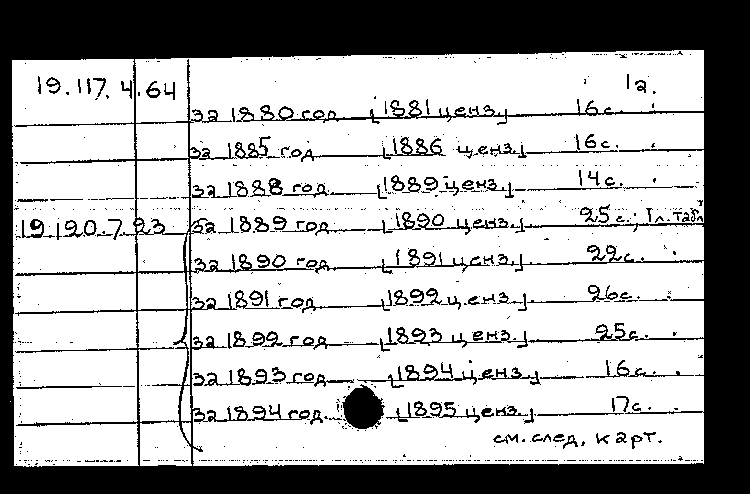 19.117.4.64 1а.
за 1880 год [1881 ценз.] 16 с.
за 1885 год [1886 ценз.] 16 с.
за 1888 год. [1889 ценз.] 14 с.
19.120.7.23 за 1889 год. [1890 ценз.] 25 с.; 1 л. табл
за 1890 год. [1891 ценз.] 22 с.
за 1891 год. [1892 ценз.] 26 с.
за 1892 год. [1893 ценз.] 25 с.
за 1893 год. [1894 ценз.] 16 с.
за 1894 год. [1895 ценз.] 17 с.
см. след. карт.